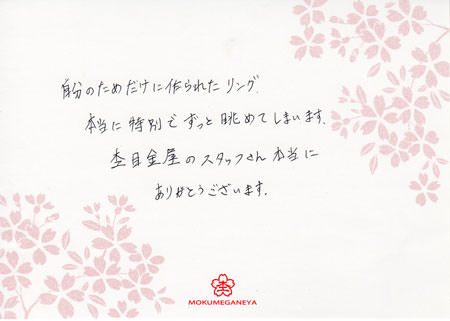 自分のためだけに作られたリング。
本当に特別でずっと眺めてしまいます。
杢目金屋のスタッフさん本当に
ありがとうございます。
杢
MOKUMEGANEYA